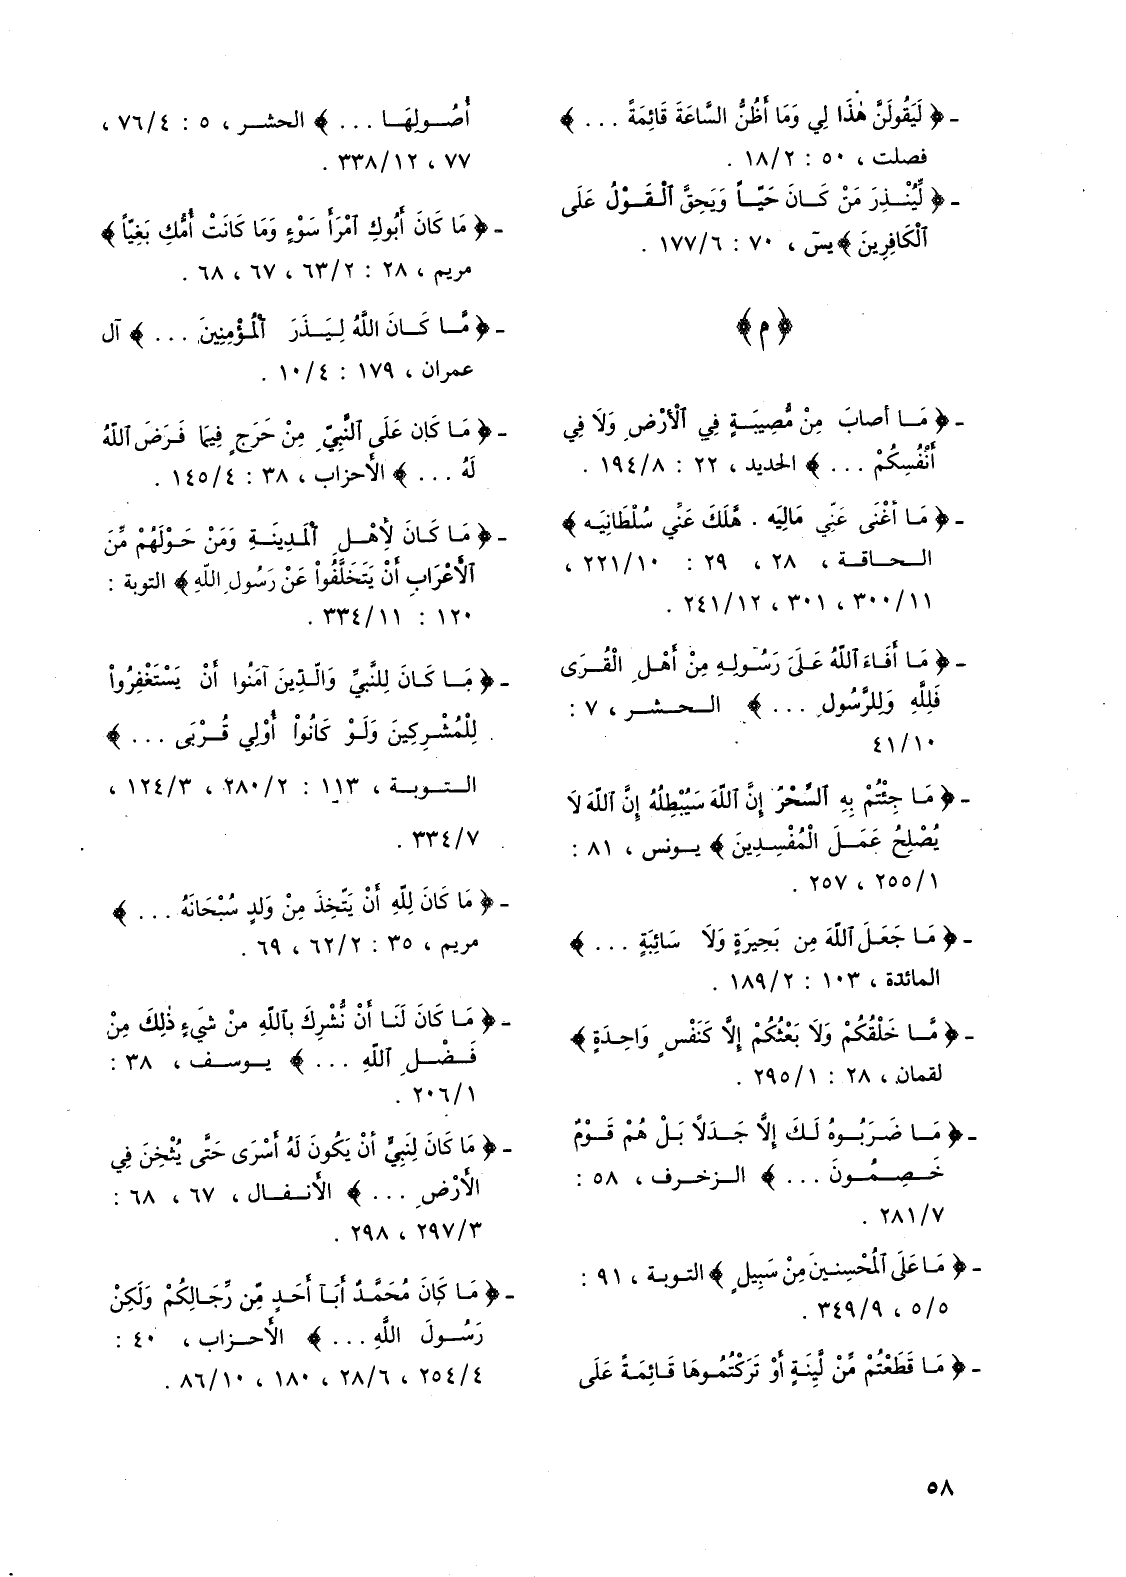 - ﴿ لَيَقُولَنَّ هٰذَا لِي وَمَا أَظُنُّ السَّاعَةَ قَائِمَةً ... ﴾
فصلت ، ٥٠ : ١٨/٢ .
- ﴿ لِّيُنْذِرَ مَنْ كَانَ حَيّاً وَيَحِقَّ ٱلْقَوْلُ عَلَى
ٱلْكَافِرِينَ ﴾ يسۤ ، ٧٠ : ١٧٧/٦ .
﴿ م ﴾
- ﴿ مَا أصابَ مِنْ مُّصِيبَةٍ فِي ٱلْأَرْضِ وَلَا فِي
أَنْفُسِكُمْ ... ﴾ الحديد ، ٢٢ : ١٩٤/٨ .
- ﴿ مَا أَغْنَى عَنِّي مَالِيَه . هَّلَكَ عَنِّي سُلْطَانِيَه ﴾
الحاقة ، ٢٨ ، ٢٩ : ٢٢١/١٠ ،
٣٠٠/١١ ، ٣٠١ ، ٢٤١/١٢ .
- ﴿ مَا أَفَاءَ ٱللَّهُ عَلَىَ رَسُولِهِ مِنْ أَهْلِ الْقُرَى
فَلِلَّهِ وَلِلرَّسُولِ ... ﴾ الحشر ، ٧ :
٤١/١٠
- ﴿ مَا جِئْتُمْ بِهِ ٱلسِّحْرُ إِنَّ ٱللَّهَ سَيُبْطِلُهُ إِنَّ ٱللَّهَ لاَ
يُصْلِحُ عَمَلَ الْمُفْسِدِينَ ﴾ يونس ، ٨١ :
٢٥٥/١ ، ٢٥٧ .
- ﴿ مَا جَعَلَ ٱللَّهَ مِن بَحِيرَةٍ وَلاَ سَائِبَةٍ ... ﴾
المائدة ، ١٠٣ : ١٨٩/٢ .
- ﴿ مَّا خَلْقُكُمْ وَلاَ بَعْثُكُمْ إِلاَّ كَنَفْسٍ وَاحِدَةٍ ﴾
لقمان ، ٢٨ : ٢٩٥/١ .
- ﴿ مَا ضَرَبُوهُ لَكَ إِلاَّ جَدَلاً بَلْ هُمْ قَوْمٌ
خَصِمُونَ ... ﴾ الزخرف ، ٥٨ :
٢٨١/٧ .
- ﴿ مَا عَلَى ٱلْمُحْسِنِينَ مِنْ سَبِيلٍ ﴾ التوبة ، ٩١ :
٥/٥ ، ٣٤٩/٩ .
- ﴿ مَا قَطَعْتُمْ مِّنْ لِّينَةٍ أَوْ تَرَكْتُمُوهَا قَائِمَةً عَلَى
أُصُولِهَا ... ﴾ الحشر ، ٥ : ٧٦/٤ ،
٧٧ ، ٣٣٨/١٢ .
- ﴿ مَا كَانَ أَبُوكِ ٱمْرَأَ سَوْءٍ وَمَا كَانَتْ أُمُّكِ بَغِيّاً ﴾
مريم ، ٢٨ : ٦٣/٢ ، ٦٧ ، ٦٨ .
- ﴿ مَّا كَانَ اللَّهُ لِيَذَرَ ٱلْمُؤْمِنِينَ ... ﴾ آل
عمران ، ١٧٩ : ١٠/٤ .
- ﴿ مَا كَانَ عَلَى ٱلنَّبِيِّ مِنْ حَرَجٍ فِيمَا فَرَضَ ٱللَّهُ
لَهُ ... ﴾ الأحزاب ، ٣٨ : ١٤٥/٤ .
- ﴿ مَا كَانَ لِأَهْلِ ٱلْمَدِينَةِ وَمَنْ حَوْلَهُمْ مِّنَ
ٱلْأَعْرَابِ أَنْ يَتَخَلَّفُواْ عَنْ رَسُولِ اللَّهِ ﴾ التوبة :
١٢٠ : ٣٣٤/١١ .
- ﴿ مَا كَانَ لِلنَّبِيِّ وَالَّذِينَ آمَنُوا أَنْ يَسْتَغْفِرُواْ
لِلْمُشْرِكِينَ وَلَوْ كَانُواْ أُوْلِي قُرْبَى ... ﴾
التوبة ، ١١٣ : ٢٨٠/٢ ، ١٢٤/٣ ،
٣٣٤/٧ .
- ﴿ مَا كَانَ لِلَّهِ أَنْ يَتَّخِذَ مِنْ وَلَدٍ سُبْحَانَهُ ... ﴾
مريم ، ٣٥ : ٦٢/٢ ، ٦٩ .
- ﴿ مَا كَانَ لَنَا أَنْ نُّشْرِكَ بِٱللَّهِ مِنْ شَيْءٍ ذٰلِكَ مِنْ
فَضْلِ ٱللَّهِ ... ﴾ يوسف ، ٣٨ :
٢٠٦/١ .
- ﴿ مَا كَانَ لِنَبِيٍّ أنْ يَكُونَ لَهُ أَسْرَى حَتَّى يُثْخِنَ فِي
الأَرْضِ ... ﴾ الأنفال ، ٦٧ ، ٦٨ :
٢٩٧/٣ ، ٢٩٨ .
- ﴿ مَا كَانَ مُحَمَّدٌ أَبَآ أَحَدٍ مِّن رِّجَالِكُمْ وَلَكِنْ
رَسُولَ اللَّهِ ... ﴾ الأحزاب ، ٤٠ :
٢٥٤/٤ ، ٢٨/٦ ، ١٨٠ ، ٨٦/١٠ .
٥٨